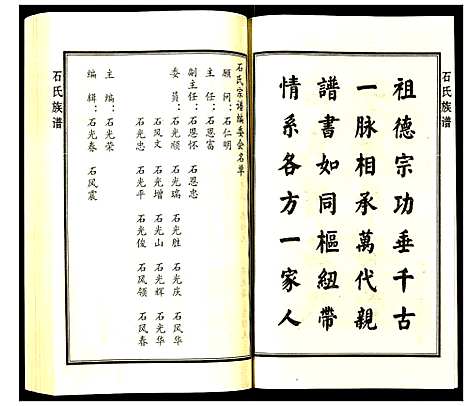 石氏族譜
祖德宗功垂千古
一脉相承萬代親
譜書如同樞紐帶
情系各方一家人
石氏宗譜編委会名單
顧 問：石仁明
主 任：石恩富
副主任：石恩怀 石恩忠
委 員：石光順 石光瑞 石光胜 石光庆 石风华
石风文 石光增 石光山 石光辉 石光华
石光忠 石光平 石光俊 石风领 石风春
主 編：石光荣
編 輯：石光春 石风震
石氏族譜